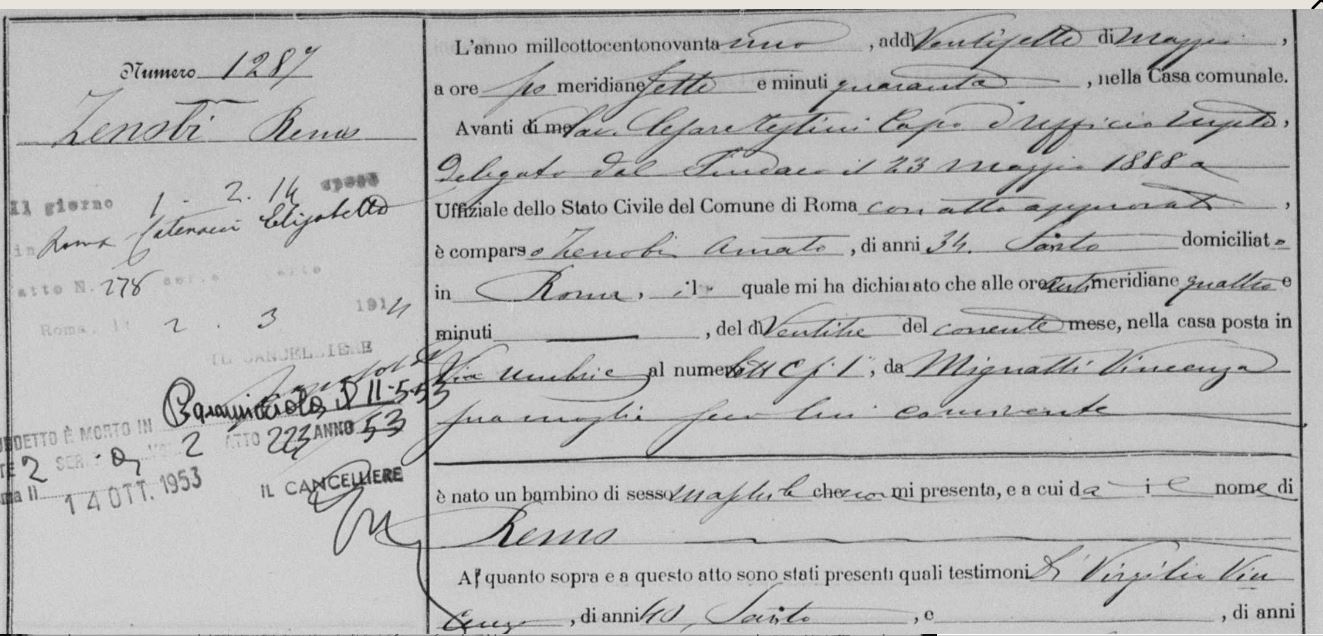 Numero 1287
Zenobi Remo
Il giorno 1 - 2. 14 sposò
in Roma Catenacci Elisabetta
atto N. 278 serie parte
Roma, li 2. 3 1914
IL CANCELLIERE
II-5-53
DETTO È MORTO IN
2 SER. 2 VOL. 2 ATTO 223 ANNO 53
14 OTT. 1953
IL CANCELLIERE
L'anno milleottocentonovanta uno, addì Ventisette di Maggio,
a ore po meridiane sette e minuti quaranta, nella Casa comunale.
Avanti di me Cav. Cesare Teglini Capo d'Ufficio
Delegato dal Sindaco il 23 Maggio 1888 a
Uffiziale dello Stato Civile del Comune di Roma con atto approvato,
è comparso Zenobi Amato, di anni 34. Sarto domiciliato
in Roma, il quale mi ha dichiarato che alle ore anti meridiane quattro e
minuti , del dì Ventitre del corrente mese, nella casa posta in
Via Umbria al numero , da Mignatti Vincenza
sua moglie seco lui convivente
è nato un bambino di sesso maschile che non mi presenta, e a cui da i nome di
Remo
A quanto sopra e a questo atto sono stati presenti quali testimoni Di Virgilio Vin
cenzo, di anni 40, Sarto, e , di anni